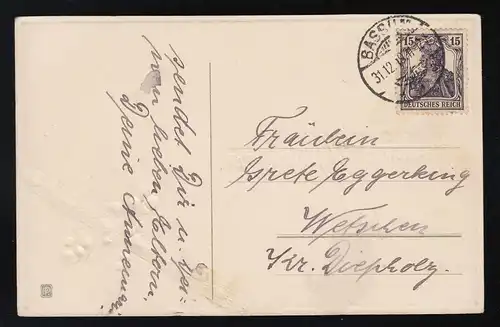 sendet Dir u. Dei-
nen lieben Eltern.
Deine
BASSUM
31.12.
15 15
DEUTSCHES REICH
Fräulein
Grete Eggerking
Wetschen
Kr. Diepholz.